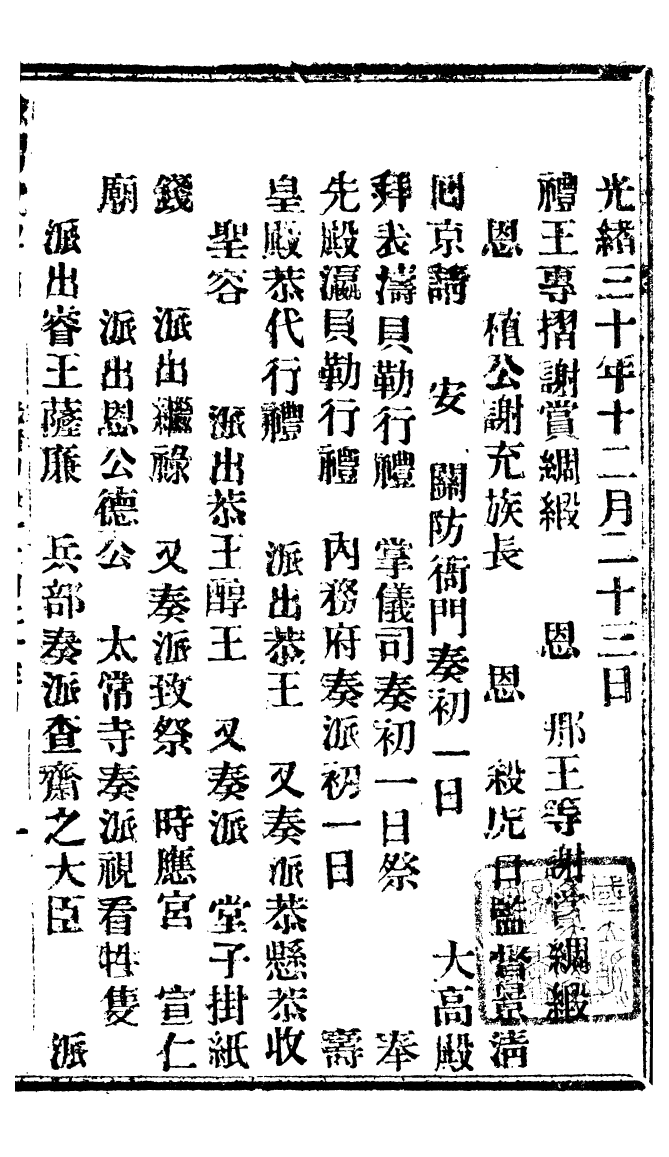 光緒三十年十二月二十三日
禮王專摺謝賞綢緞　恩　那王等謝賞綢緞
恩　植公謝充族長　恩　殺虎口監督景淸
回京請　安　關防衙門奏初一日　大高殿
拜表濤貝勒行禮　掌儀司奏初一日祭　奉
先殿瀛貝勒行禮　內務府奏派初一日　壽
皇殿恭代行禮　派出恭王　又奏派恭懸恭收
聖容　派出恭王醇王　又奏派　堂子掛紙
錢　派出繼祿　又奏派致祭　時應宮　宣仁
廟　派出恩公德公　太常寺奏派視看牲隻
派出睿王薩廉　兵部奏派查齋之大臣　派